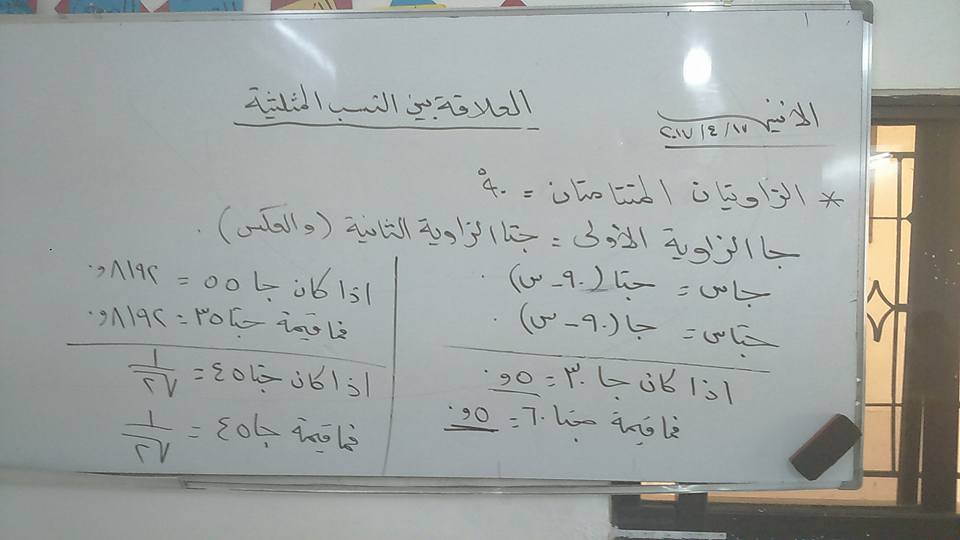 الاثنين
٢٠١٧/٤/١٧
العلاقة بين النسب المثلثية
* الزاويتان المتتامتان = ٩٠°
جا الزاوية الأولى = جتا الزاوية الثانية (والعكس).
جاس = جتا (٩٠ - س)
جتاس = جا (٩٠ - س)
اذا كان جا ٣٠ = ٥و.
فما قيمة جتا ٦٠ = ٥و.
اذا كان جا ٥٥ = ٨١٩٢و.
فما قيمة جتا ٣٥ = ٨١٩٢و.
اذا كان جتا ٤٥ = ١/√٢
فما قيمة جا ٤٥ = ١/√٢